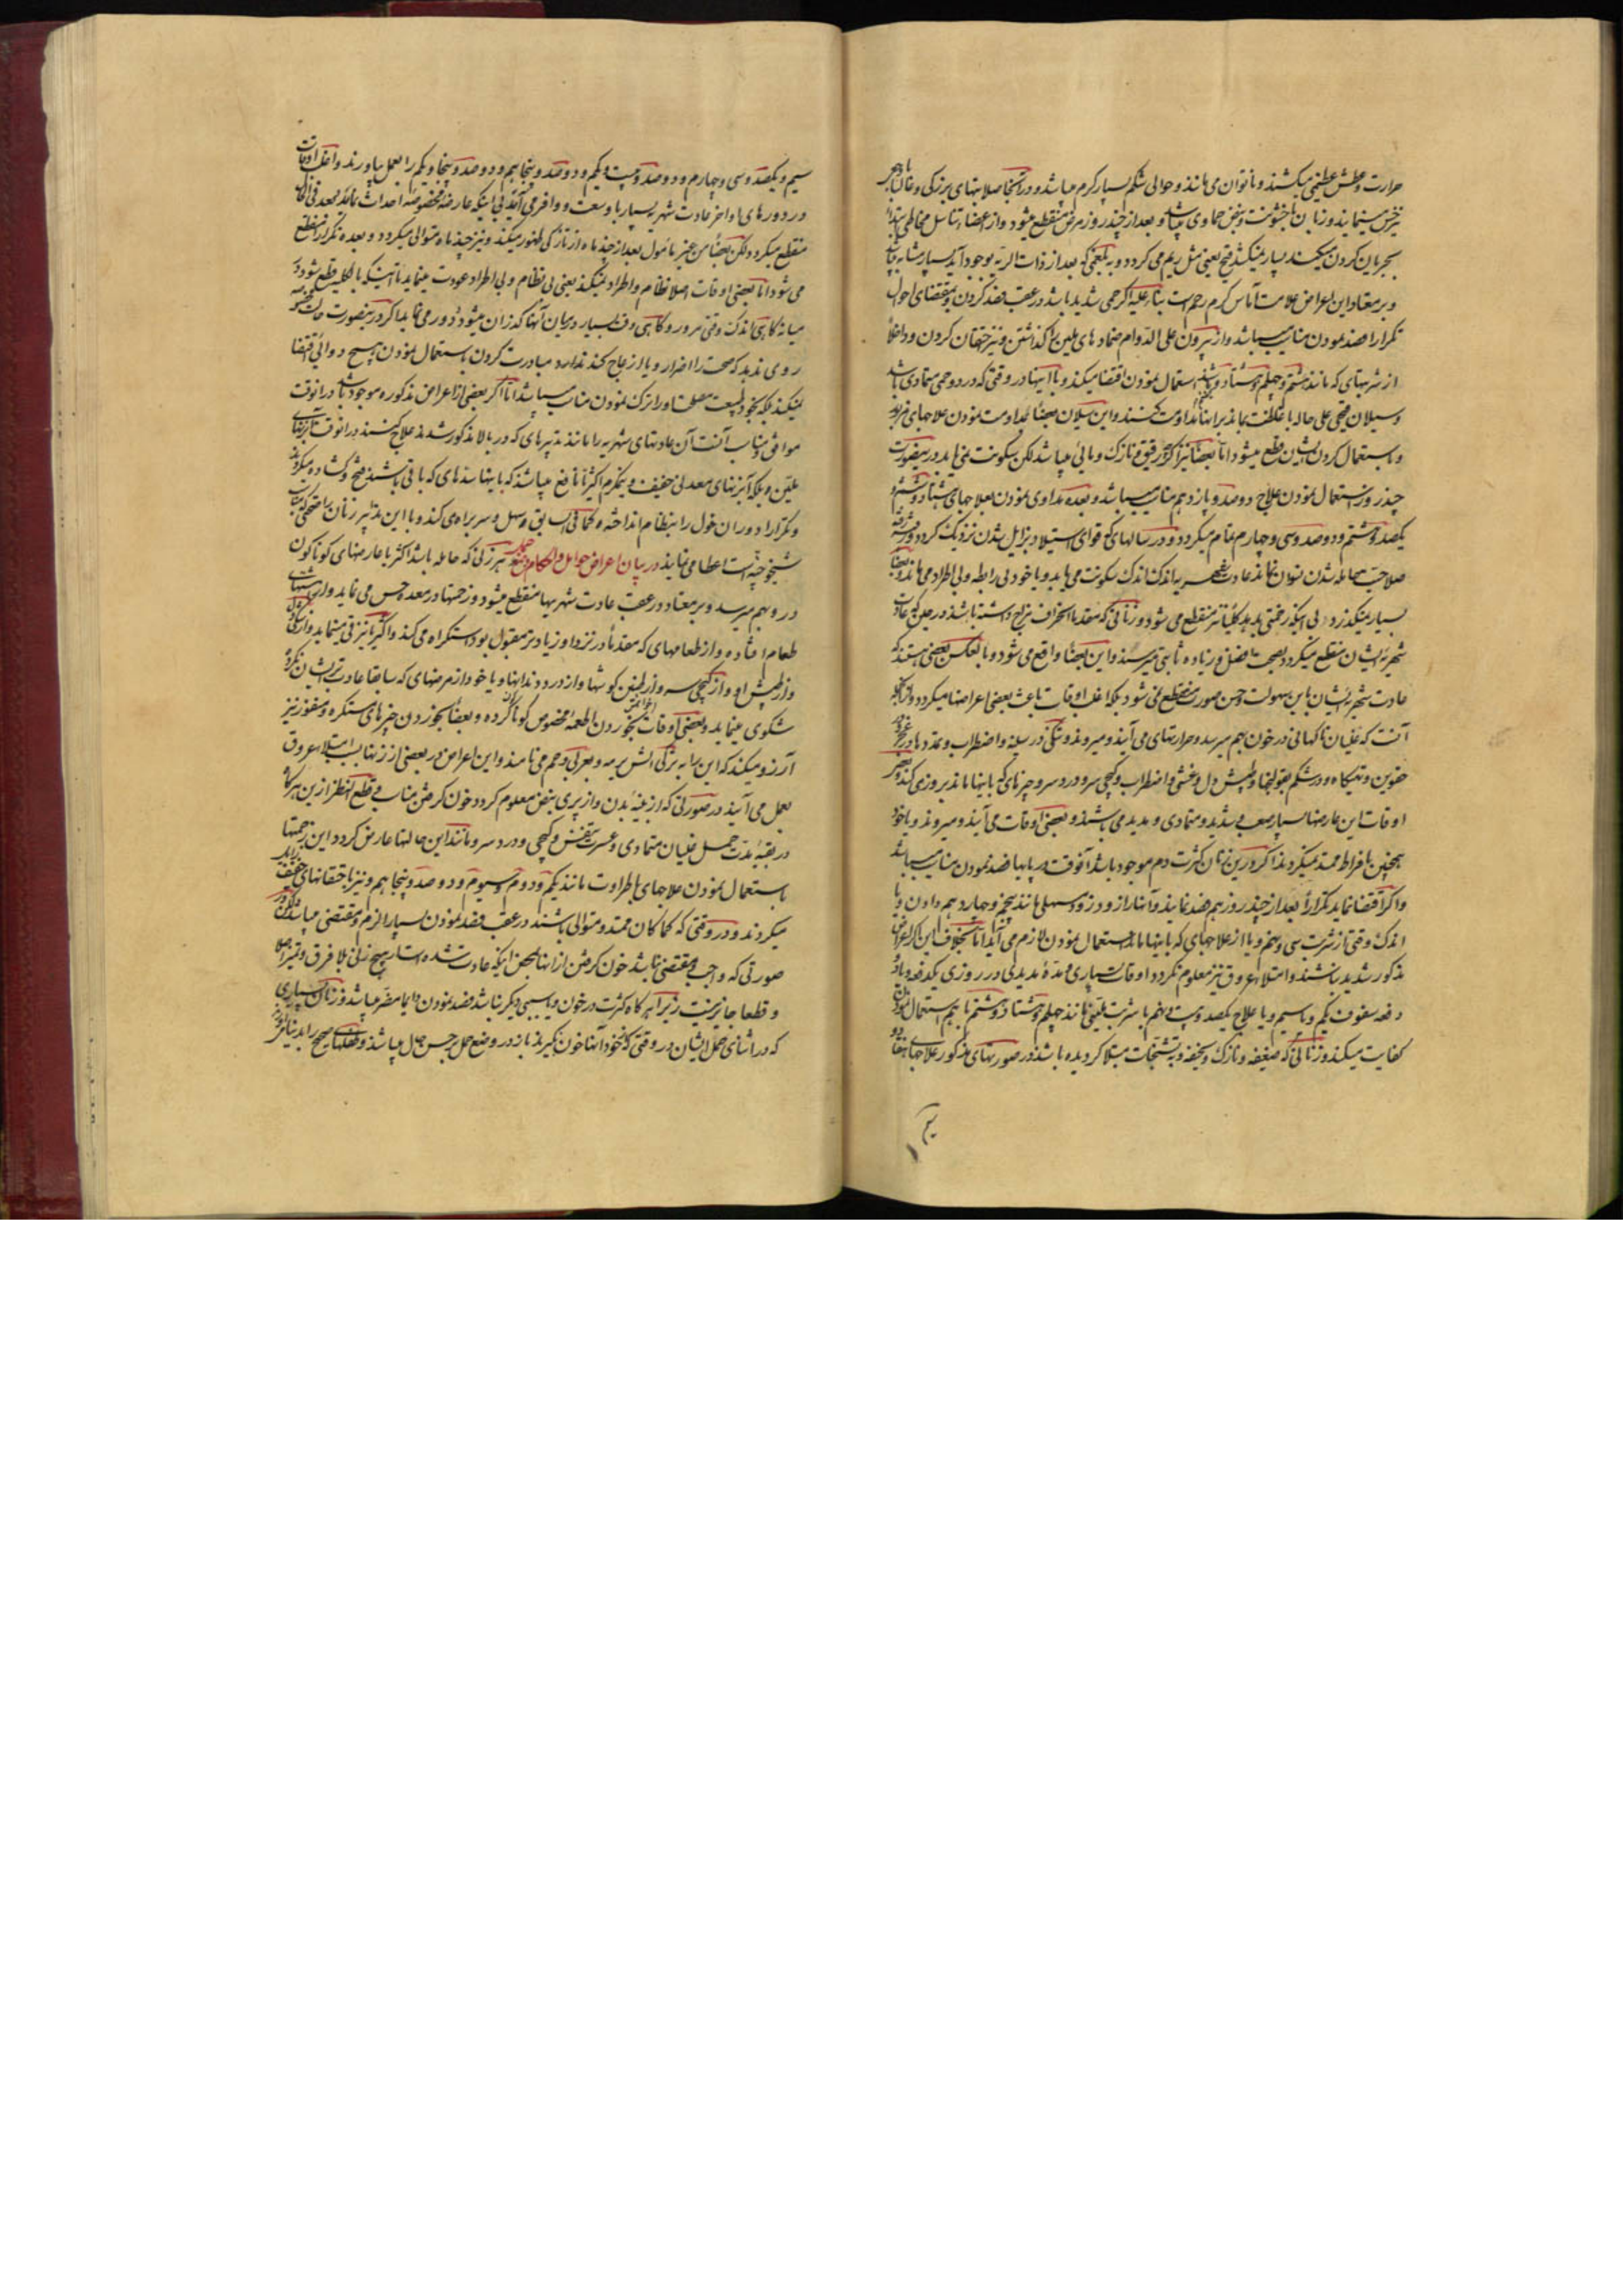 حرارت و عطش عظیمی میکشند و ناتوان می مانند و حوالی شکم بسیار کرم میباشد و در آنجا صلابتهای بزرکی و غالبا
بعد از چند روز مرض منقطع میشود و از اعضاء تناسل
بجریان کردن میکند بسیار میکشد قیح یعنی مثل ریم می کردد و به بلغمی که بعد از ذات الریه بوجود آید بسیار مشابه
و بر معتاد این اعراض علامت آماس کرم رحم است بناء علیه اکر حمی شدید باشد در عقب فصد کردن و بمقتضای احوال
تکرارا فصد نمودن مناسب میباشد و از بیرون علی الدوام ضمادهای ملین بر آن کذاشتن و نیز حقنهان کردن و داخلا
از شربتهای که مانند ششم و چهلم و هشتاد استعمال نمودن اقتضا میکند و با اینها در وقتی که درد و حمی متمادی باشد
و سیلان قیحی علی حاله با غلظت بماند بر اینها مداومت کنند و این سیلان بعضا بمداومت نمودن علاجهای مزبور
و باستعمال کردن ایشان قطع میشود اما بعضا نیز اکرچه رقیق و نازک و مائی میباشد لکن سکونت نمی یابد در این صورت
چند روز استعمال نمودن علاج دوصد و یازدهم مناسب میباشد و بعده مداوی نمودن بعلاجهای هشتاد و ششم و
یکصد و ششم و دوصد و سی و چهارم تمام میکردد و در سالهای که قوای استیلاد بزایل شدن نزدیک کردد و
صلاحیت حامله شدن نتوان نماند عادت شهریه اندک اندک سکونت می یابد و یا خود بی رابطه و بی اطراد می ماند و بعضا
بسیار میکذرد بی اینکه زحمتی بدید کلیتا نیز منقطع می شود و زنانی که مقدما انحراف مزاج داشته باشند در حین که عادت
شهریه ایشان منقطع میکردد بصحت فاضل و زیاده ثابتی میرسند و این بعضا واقع می شود و بالعکس بعضی هستند که
عادت شهریه ایشان باین سهولت و حسن صورت منقطع نمی شود بلکه اغلب اوقات باعث بعضی اعراضها میکردد و از آنجمله
آنست که غلیان ناکهانی در خون بهم میرسد و حرارتهای می آیند و میروند و تنکی در سینه و اضطراب و تمددها در
و تهیکاه و در شکم قولنجها و طپش دل و غشی و اضطراب و کیجی سر و درد سر و چیزهای که باینها مانند بروز می کند و بعضی
اوقات این عارضها بسیار صعب و شدید و متمادی و مدید می باشند و بعضی اوقات می آیند و میروند و یا خود
همچنین بافراط ممتد نمیکردند اکر در این زنان کثرت دم موجود باشد آنوقت در پایها فصد نمودن مناسب میباشد
و اکر اقتضا نماید تکرارا بعد از چند روز هم فصد نمایند و آنها را از ود زود مسهلی مانند پنجم و چهاردهم دادن و یا
اندک وقتی از شربت سی و پنجم و یا از علاجهای که باینها ماند استعمال نمودن لازم می آید اما بخلاف این اکر اعراض
مذکور شدید نباشند و امتلاء عروق نیز معلوم نکردد اوقات بسیاری و مدة مدیدی در روزی یکدفعه و یا دو
دفعه سفوف یکم و یا سیم و یا علاج یکصد و بیست و پنجم با شربت ملینی مانند چهلم و هشتاد و ششم باهم استعمال نمودن
کفایت میکند و زنانی که ضعیفه و نازک و نحیفه و به تشنجات مبتلا کردیده باشند در صورتهای مذکور علاجهای هفتاد و
سیم
سیم و یکصد و سی و چهارم و دوصد و بیست و یکم و دوصد و پنجاهم و دوصد و پنجاه و یکم را بعمل بیاورند و اغلب اوقات
در دورهای اواخر عادت شهریه بسیار با وسعت و وافر می آید بی اینکه عارضه مخصوصه احداث نماید بعد فی الحال
منقطع میکردد لکن بعضا من غیر مامول بعد از چند ماه از تازکی ظهور میکند و نیز چند ماه متوالی میکردد و بعده تکرار منقطع
می شود اما بعضی اوقات اصلا نظام و اطراد نمیکند یعنی بی نظام و بی اطراد عودت مینماید تا اینکه بالکلیت قطع شود در
میانه کاهی اندک وقتی مرور و کاهی وقت بسیار در میان آنها کذران میشود و دور می نماید اکر در این صورت حالت
روی ندهد که صحت را اضرار و یا ازعاج کند ندارد مبادرت کردن باستعمال نمودن هیچ دوائی اقتضا
نمیکند بلکه بخود طبیعت مصلحت او را ترک نمودن مناسب میباشد اما اکر بعضی از اعراض مذکوره موجود باشد در آنوقت
موافق و مناسب آنست آن عادتهای شهریه را مانند تدبیرهای که در بالا مذکور شدند علاج کنند در آنوقت
ملین و بلکه آبزنهای معدنی خفیف و نیمکرم اکثریا نافع میباشد که باینها سدهای که باقی باشند فتح و کشاده میکردد
و تکرارا دوران خون را بنظام انداخته و کما فی السابق سهل و سربراه می کند و با این تدبیر زنان
شیخوخیت است اعطا می نمایند در بیان اعراض حوامل و احکام هر زنی که حامله باشد اکثریا عارضهای کوناکون
در وی بهم میرسد و بر معتاد در عقب عادت شهریها منقطع میشود و زحمتها در معده حس می نماید و از اشتهای
طعام افتاده و از طعامهای که مقدما در نزد او زیادتر مقبول بود استکراه می کند و اکثریا نیز قی مینماید و از
و از طپش او و از کیجی سر و از طنین کوشها و از درد دندانها و یا خود از مرضهای که سابقا عادت ایشان نکرده
شکوی مینماید و بعضی اوقات بخوردن اطعمه مخصوص کوناکون کرده و بعضا بخوردن چیزهای مستکره و منفور نیز
آرزو میکند که این را به ترکی آش یرمه و بعربی وحم می نامند و این اعراض در بعضی از زنها بسبب امتلاء عروق
بعمل می آیند در صورتی که از بنیه بدن و از پری نبض معلوم کردد خون کرفتن مناسب قطع النظر از این هرکاه
در بقیه مدت حمل غثیان متمادی و عسرت تنفس و کیجی و درد سر و مانند این حالتها عارض کردد این زحمتها
باستعمال نمودن علاجهای با طراوت مانند یکم و دوم و سیوم و دوصد و پنجاهم و نیز با حقنهای خفیف
میکردند و در وقتی که کما کان ممتد و متوالی باشند در عقب فصد نمودن بسیار الزم و مقتضی میباشد
صورتی که واجب و مقتضی نباشد خون کرفتن از آنها بمحض اینکه عادت شده است از هیچ زنی بلا فرق و تمیز اصلا
و قطعا جایز نیست زیرا هرکاه کثرت در خون و یا سببی دیکر نباشد فصد نمودن دایما مضر میباشد و زنان بسیاری
که در اثنای حمل ایشان در وقتی که بخود آنها خون نکیرند باز در وضع حمل بر حسن حال میباشند و طفلهای صحیح